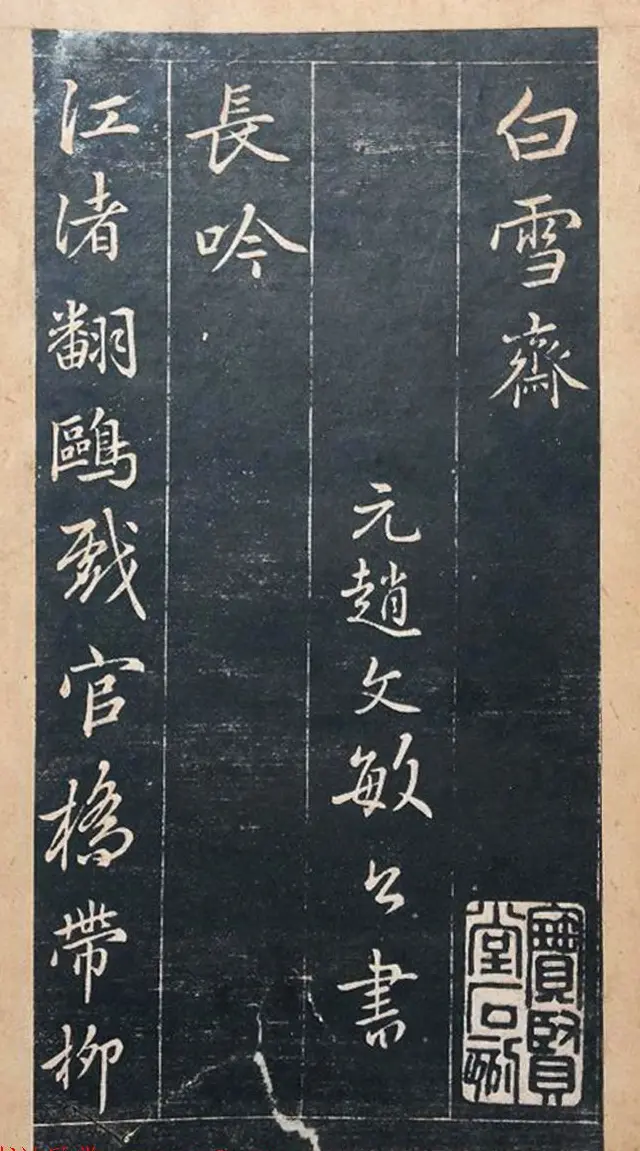 白雪齋
元趙文敏公書
長吟
江渚翻鷗戲官橋帶柳
寶賢堂石刻